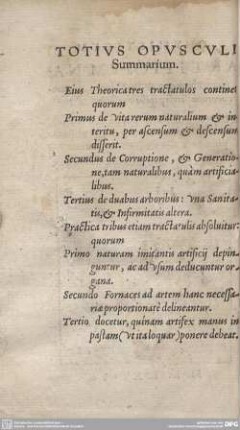 TOTIVS OPVSCVLI
Summarium.
Eius Theorica tres tractatulos continet
quorum
Primus de vita rerum naturalium & in-
teritu, per ascensum & descensum
disserit.
Secundus de Corruptione, & Generatio-
ne, tam naturalibus, quàm artificia-
libus.
Tertius de duabus arboribus: vna Sanita-
tis, & Infirmitatis altera.
Practica tribus etiam tractatulis absoluitur:
quorum
Primo naturam imitantis artificij depin-
guntur, ac ad vsum deducuntur or-
gana.
Secundo Fornaces ad artem hanc necessa-
riæ proportionatè delineantur.
Tertio docetur, quinam artifex manus in
pastam (vt ita loquar) ponere debeat.